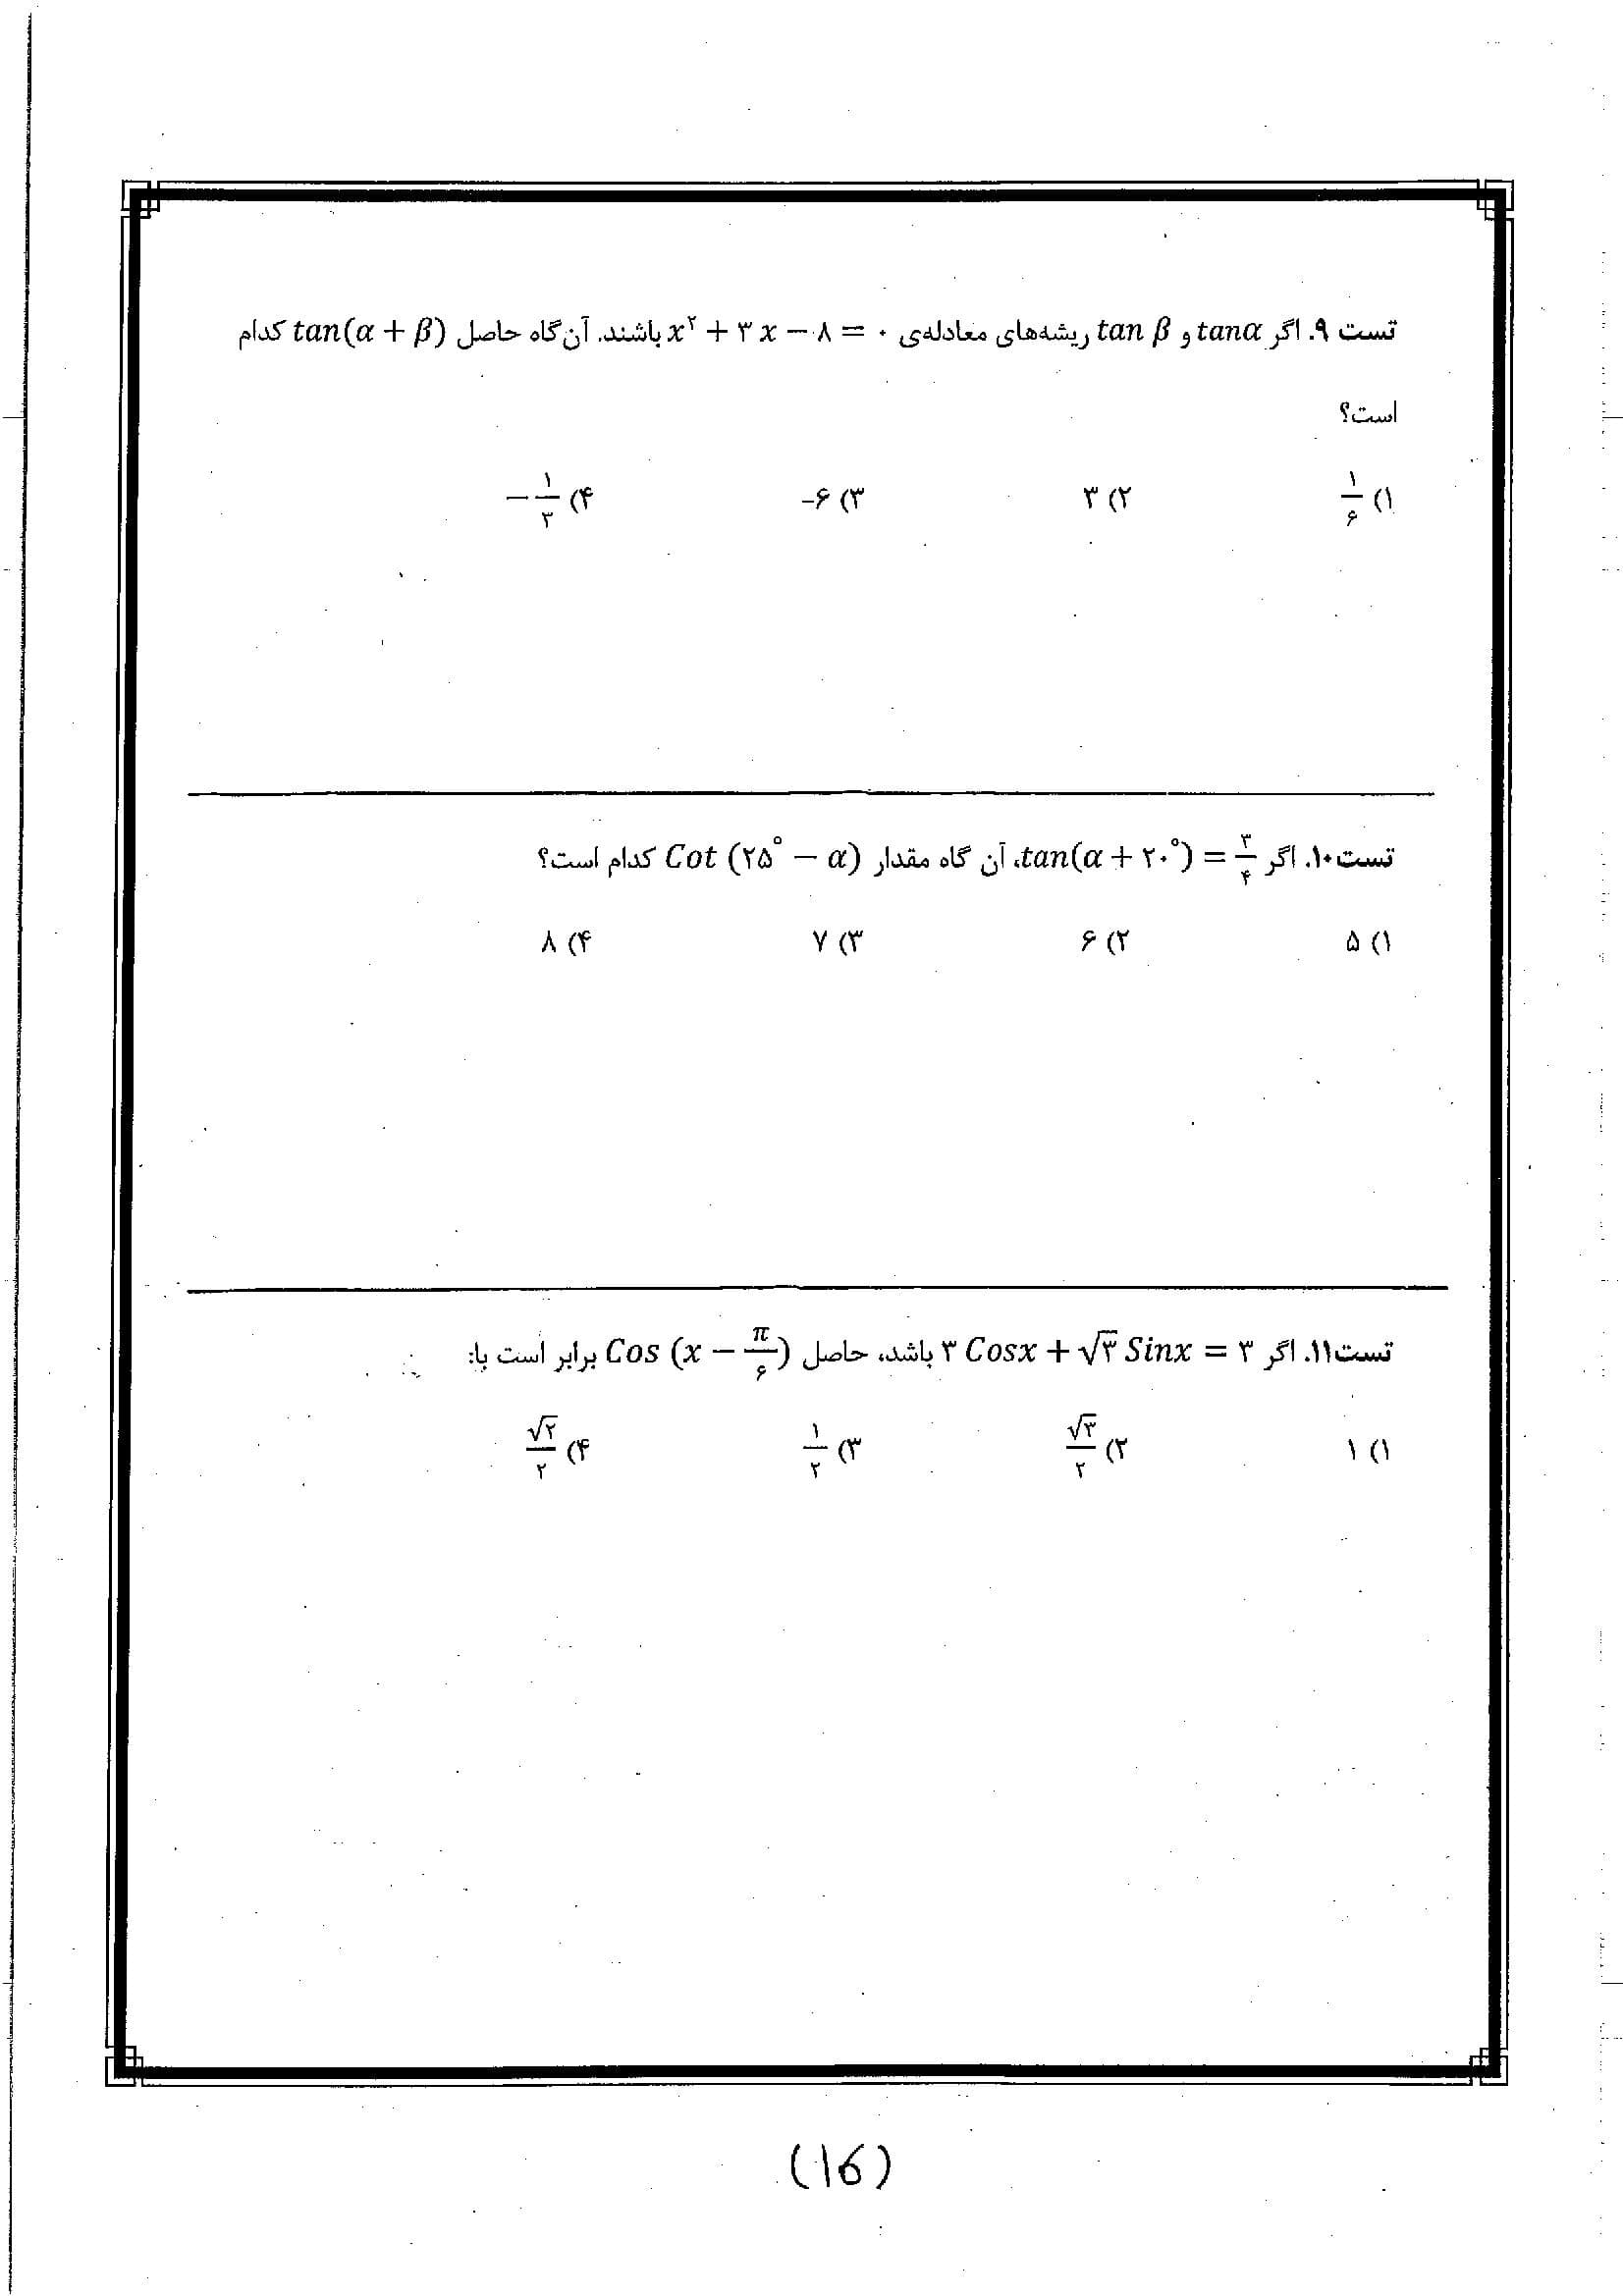 تست ۹. اگر tanα و tan β ریشه‌های معادله‌ی x² + ۳ x − ۸ = ۰ باشند. آن‌گاه حاصل tan(α + β) کدام
است؟
۱) ۱/۶ ۲) ۳ ۳) -۶ ۴) −۱/۳
تست۱۰. اگر tan(α + ۲۰°) = ۳/۴، آن گاه مقدار Cot (۲۵° − α) کدام است؟
۱) ۵ ۲) ۶ ۳) ۷ ۴) ۸
تست۱۱. اگر ۳ Cosx + √۳ Sinx = ۳ باشد، حاصل Cos (x − π/۶) برابر است با:
۱) ۱ ۲) √۳/۲ ۳) ۱/۲ ۴) √۲/۲
(16)